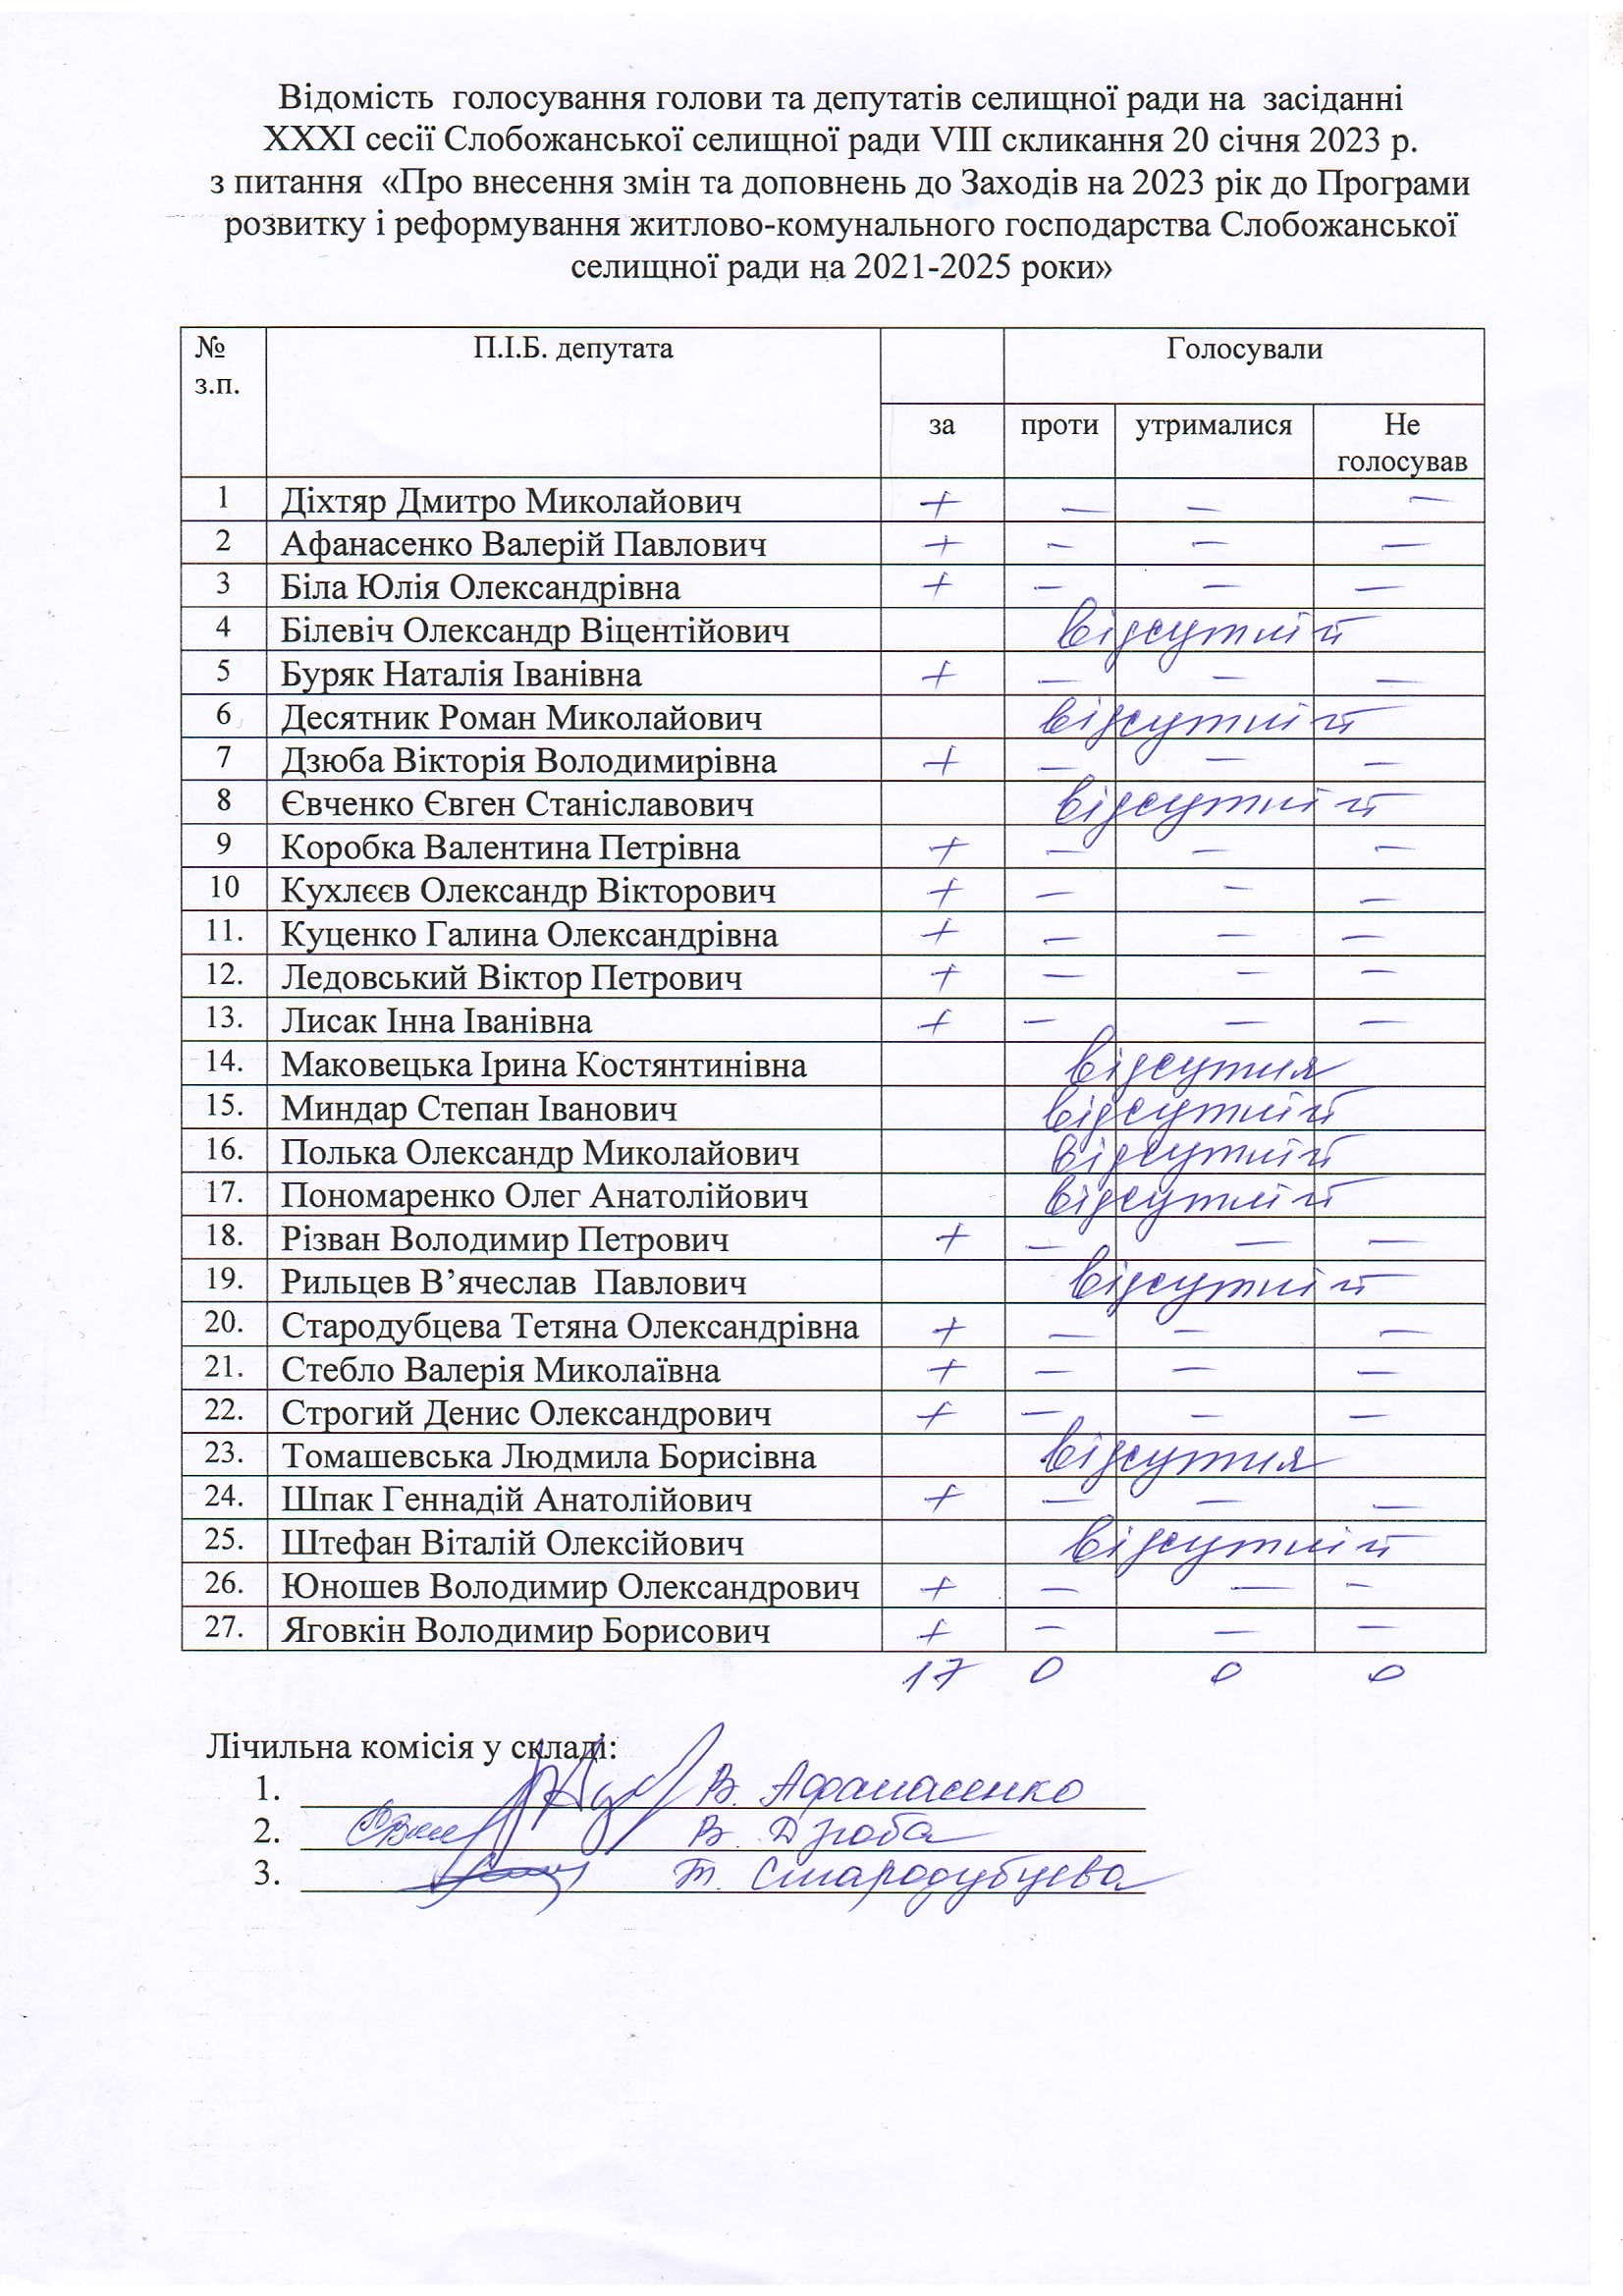 Відомість голосування голови та депутатів селищної ради на засіданні
XXXI сесії Слобожанської селищної ради VIII скликання 20 січня 2023 р.
з питання «Про внесення змін та доповнень до Заходів на 2023 рік до Програми
розвитку і реформування житлово-комунального господарства Слобожанської
селищної ради на 2021-2025 роки»
№ з.п. П.І.Б. депутата Голосували
за проти утрималися Не голосував
1 Діхтяр Дмитро Миколайович + — — —
2 Афанасенко Валерій Павлович + — — —
3 Біла Юлія Олександрівна + — — —
4 Білевіч Олександр Віцентійович відсутній
5 Буряк Наталія Іванівна + — — —
6 Десятник Роман Миколайович відсутній
7 Дзюба Вікторія Володимирівна + — — —
8 Євченко Євген Станіславович відсутній
9 Коробка Валентина Петрівна + — — —
10 Кухлєєв Олександр Вікторович + — — —
11. Куценко Галина Олександрівна + — — —
12. Ледовський Віктор Петрович + — — —
13. Лисак Інна Іванівна + — — —
14. Маковецька Ірина Костянтинівна відсутня
15. Миндар Степан Іванович відсутній
16. Полька Олександр Миколайович відсутній
17. Пономаренко Олег Анатолійович відсутній
18. Різван Володимир Петрович + — — —
19. Рильцев В’ячеслав Павлович відсутній
20. Стародубцева Тетяна Олександрівна + — — —
21. Стебло Валерія Миколаївна + — — —
22. Строгий Денис Олександрович + — — —
23. Томашевська Людмила Борисівна відсутня
24. Шпак Геннадій Анатолійович + — — —
25. Штефан Віталій Олексійович відсутній
26. Юношев Володимир Олександрович + — — —
27. Яговкін Володимир Борисович + — — —
17 0 0 0
Лічильна комісія у складі:
1. В. Афанасенко
2. В. Дзюба
3. Т. Стародубцева